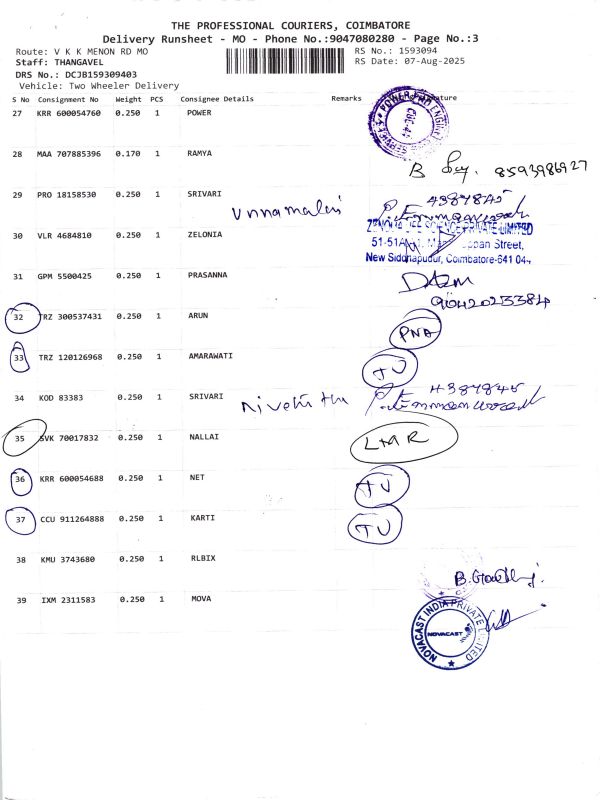 THE PROFESSIONAL COURIERS, COIMBATORE
Delivery Runsheet - MO - Phone No.:9047080280 - Page No.:3
Route: V K K MENON RD MO RS No.: 1593094
Staff: THANGAVEL RS Date: 07-Aug-2025
DRS No.: DCJB159309403
Vehicle: Two Wheeler Delivery
S No Consignment No Weight PCS Consignee Details Remarks
27 KRR 600054760 0.250 1 POWER
28 MAA 707885396 0.170 1 RAMYA
B 8593986927
29 PRO 18158530 0.250 1 SRIVARI 4387845
Unnamalai
30 VLR 4684810 0.250 1 ZELONIA
LIFE SCIENCE PRIVATE LIMITED
51-51A
Street,
New Siddhapudur, Coimbatore-641 04
31 GPM 5500425 0.250 1 PRASANNA
9042023384
32 TRZ 300537431 0.250 1 ARUN PNA
33 TRZ 120126968 0.250 1 AMARAWATI TU
34 KOD 83383 0.250 1 SRIVARI 4387845
35 SVK 70017832 0.250 1 NALLAI LMR
36 KRR 600054688 0.250 1 NET TU
37 CCU 911264888 0.250 1 KARTI TU
38 KMU 3743680 0.250 1 RLBIX
39 IXM 2311583 0.250 1 MOVA
NOVACAST INDIA PRIVATE LIMITED
NOVACAST